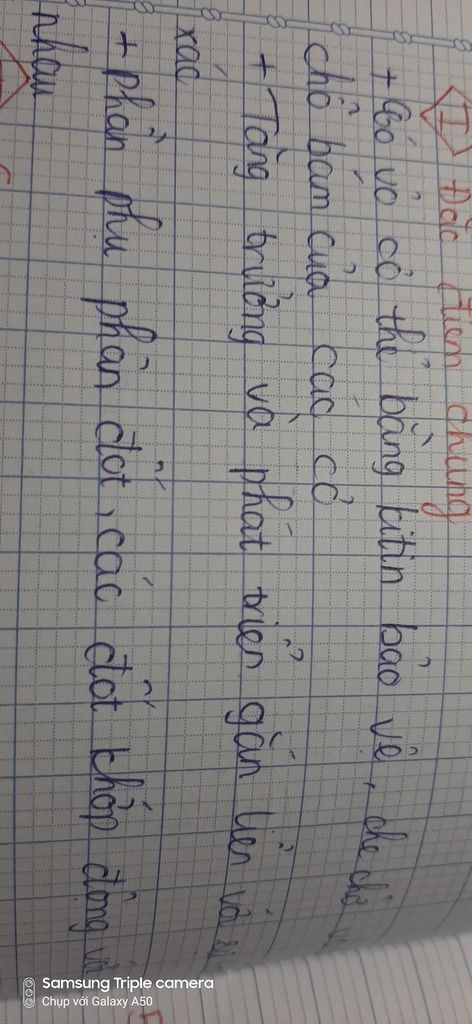 I Đặc điểm chung
+ Có vỏ cơ thể bằng kitin bảo vệ, che chở
chỗ bám của các cơ
+ Tăng trưởng và phát triển gắn liền với
xác
+ phần phụ phân đốt, các đốt khớp động
nhau
Samsung Triple camera
Chụp với Galaxy A50